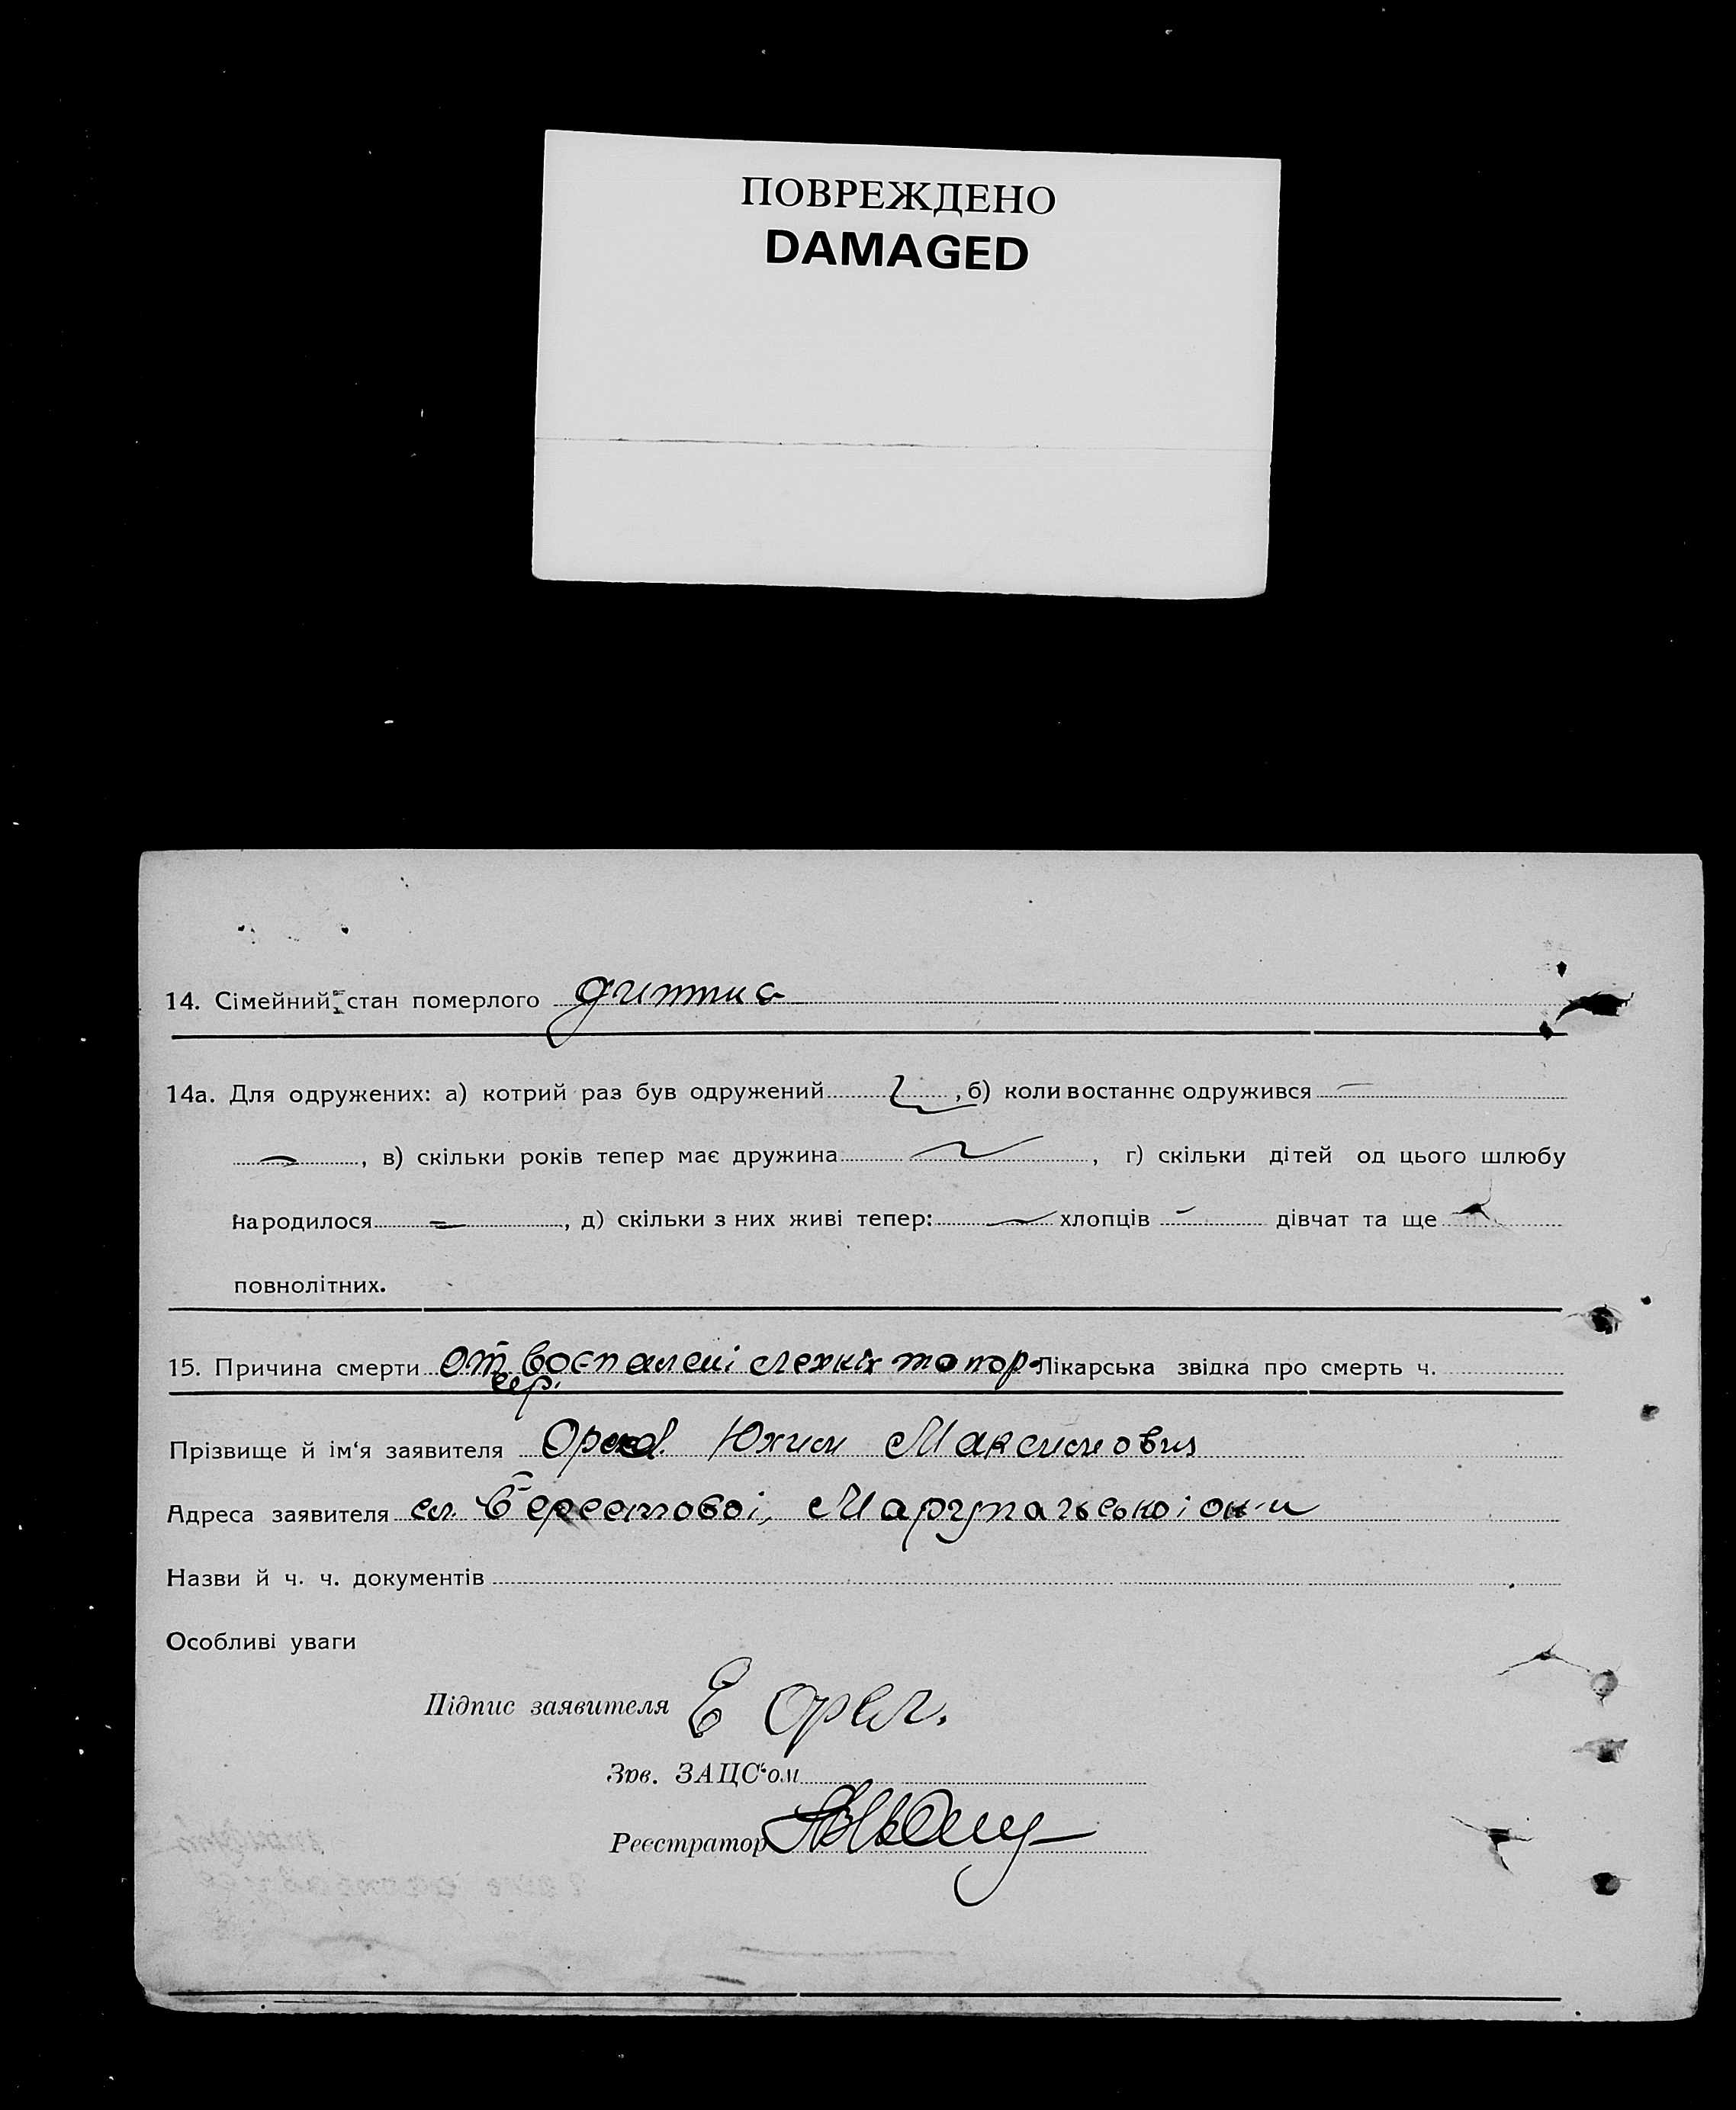 ПОВРЕЖДЕНО
DAMAGED
14. Сімейний стан померлого дитина
14а. Для одружених: а) котрий раз був одружений , б) коли востаннє одружився
, в) скільки років тепер має дружина , г) скільки дітей од цього шлюбу
народилося , д) скільки з них живі тепер: хлопців дівчат та ще
повнолітних.
15. Причина смерти от воспалені легких Лікарська звідка про смерть ч.
Прізвище й ім‘я заявителя Юхим Максимович
Адреса заявителя сл. Берестовоі,
Назви й ч. ч. документів
Особливі уваги
Підпис заявителя Е Орел.
Зав. ЗАЦС‘ом
Реєстратор